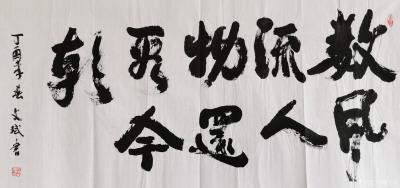 数風
流人
物還
看今
朝
丁酉年春文斌書